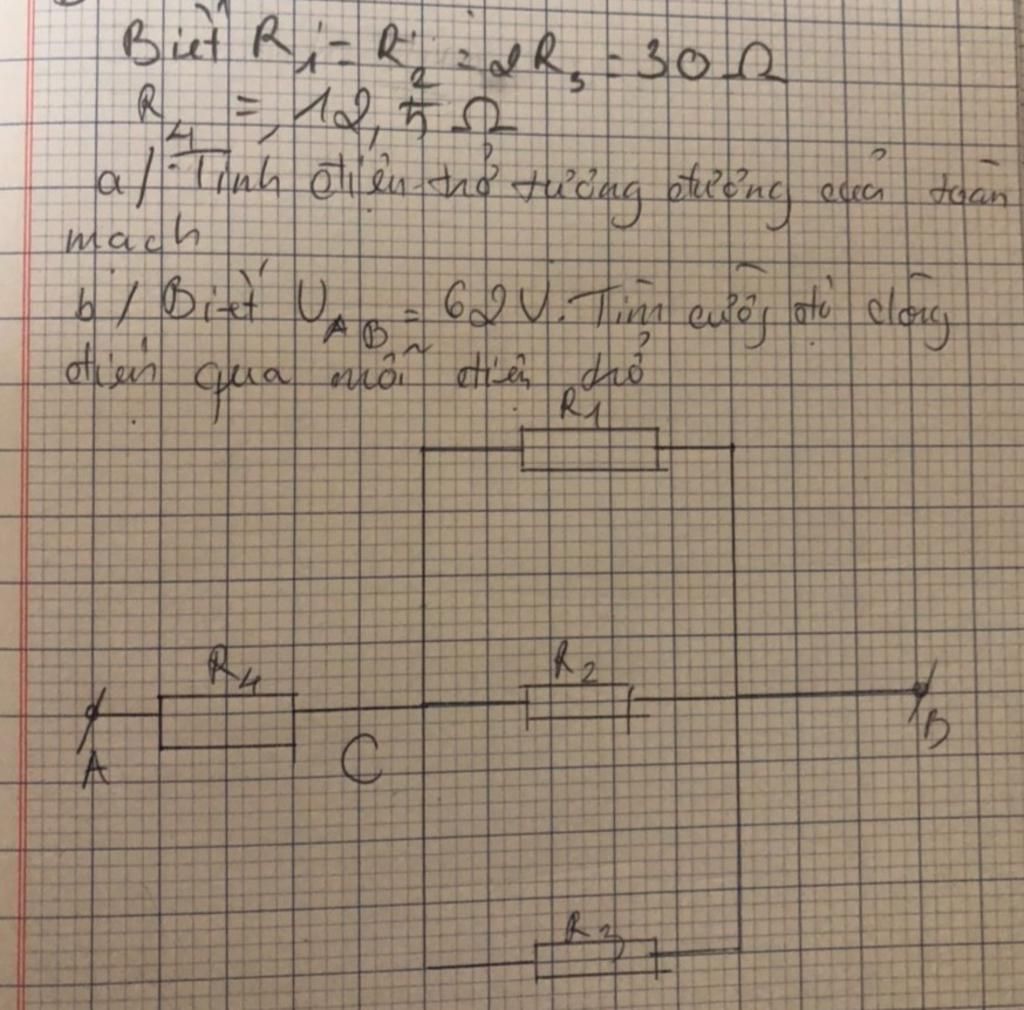 Biết R1 = R2 = 2R3 = 30 Ω
R4 = 12,5 Ω
a/ Tính điện trở tương đương của toàn
mạch
b/ Biết UAB = 62V. Tìm cường độ dòng
điện qua mỗi điện trở
R1
R4
R2
A
C
B
R3